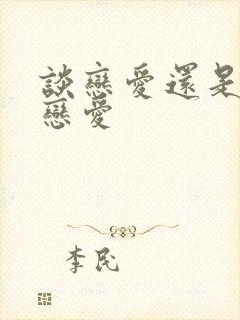 談戀愛還是
戀愛
李民